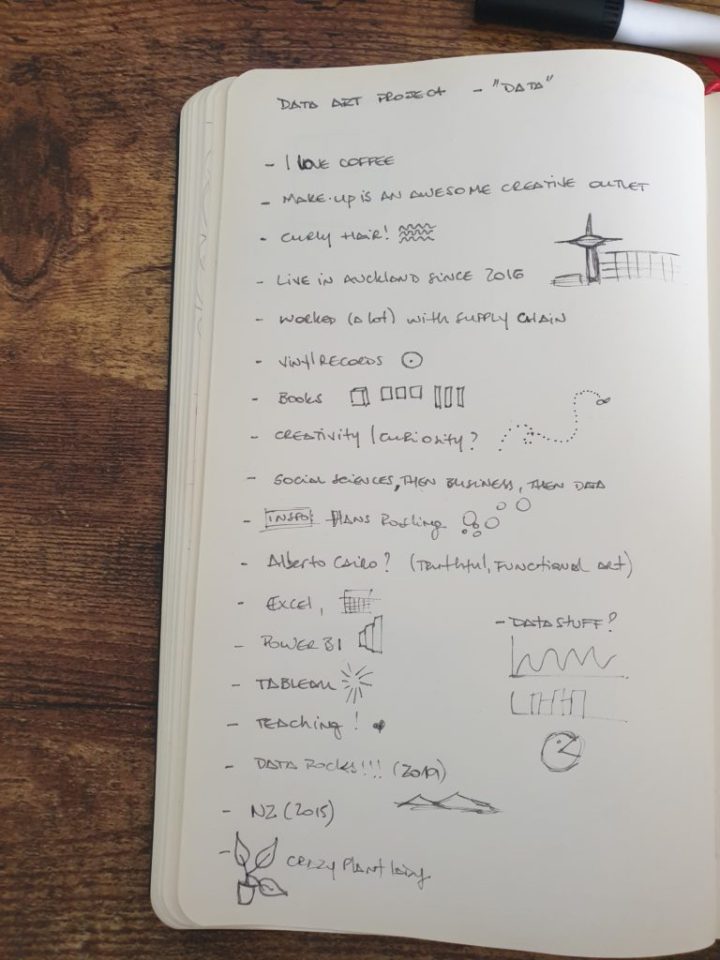 DATA ART PROJECT - "DATA"
- I LOVE COFFEE
- MAKE-UP IS AN AWESOME CREATIVE OUTLET
- CURLY HAIR!
- LIVE IN AUCKLAND SINCE 2016
- WORKED (A lot) WITH SUPPLY CHAIN
- VINYL RECORDS
- BOOKS
- CREATIVITY / CURIOSITY?
- SOCIAL SCIENCES, THEN BUSINESS, THEN DATA
- INSPO: HANS ROSLING
- Alberto CAIRO? (TRUTHFUL, FUNCTIONAL ART)
- EXCEL,
- POWER BI
- DATA STUFF?
- TABLEAU
- TEACHING!
- DATA ROCKS!!! (2019)
- NZ (2015)
- CRAZY PLANT LADY